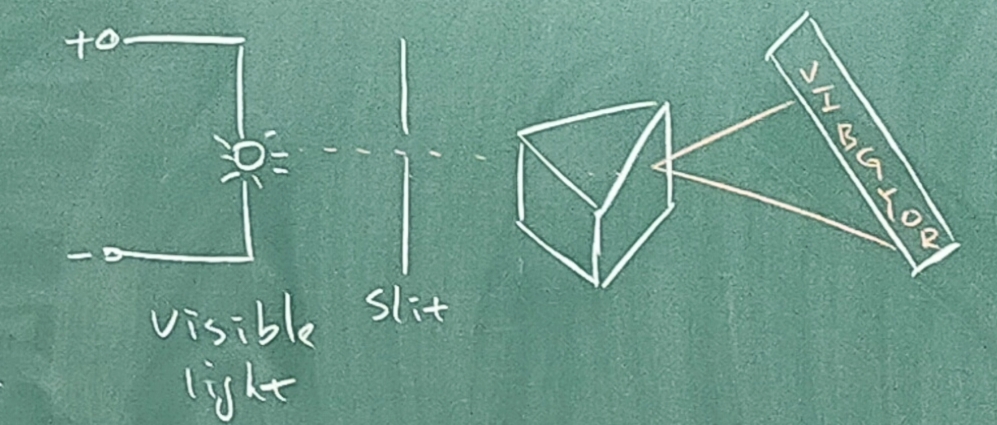 +
-
Visible
light
Slit
VIBGYOR